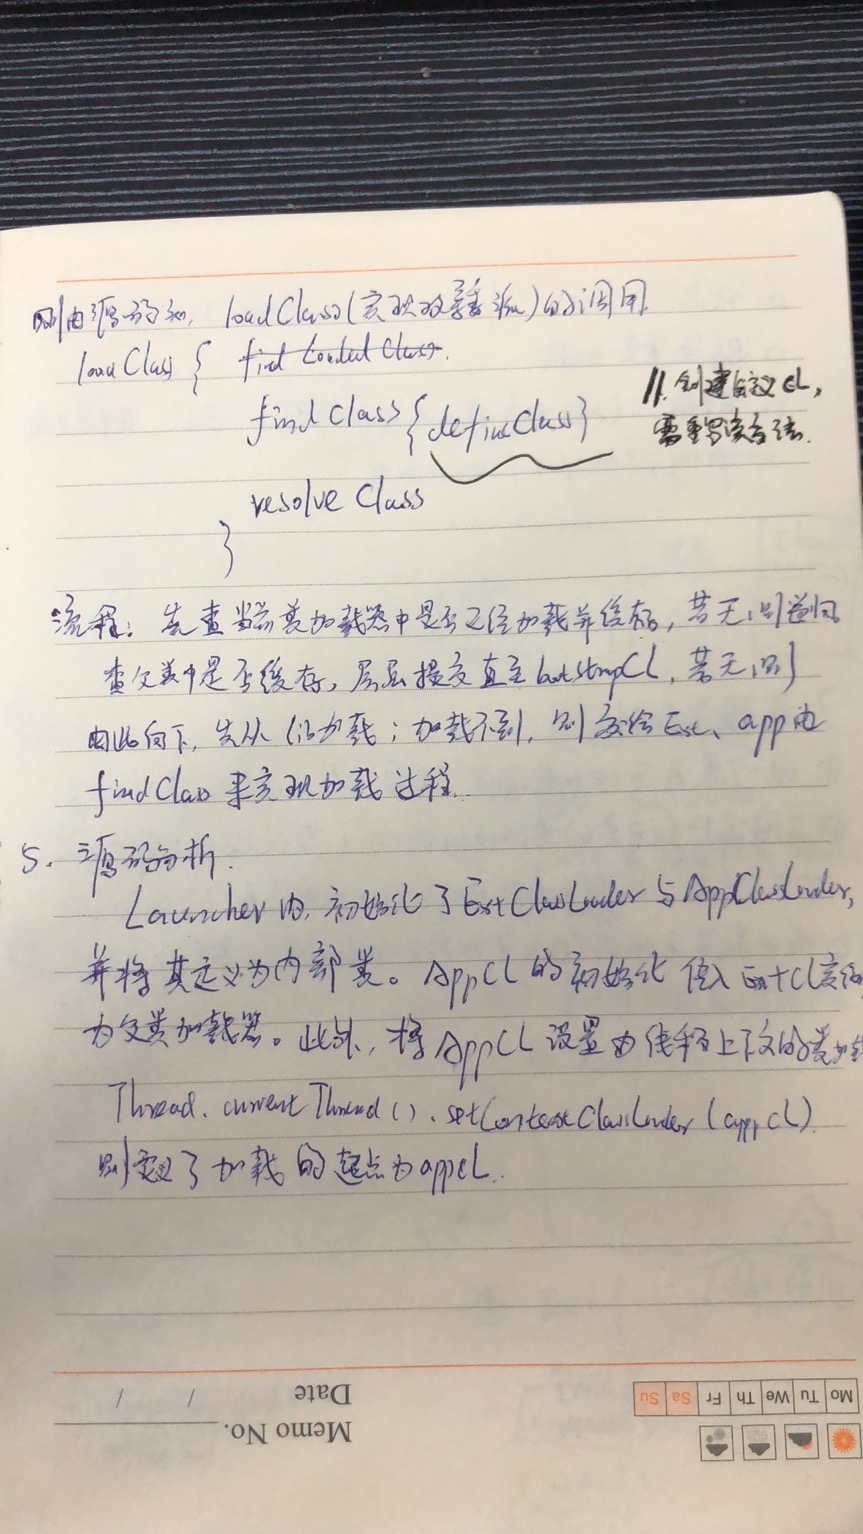 则由源码知, loadClass(实现双亲委派)的调用.
loadClass { find Loaded Class.
find Class { defineClass } // 创建自定义CL,
需重写该方法.
resolve Class
}
流程: 先查当前类加载器中是否已经加载并缓存, 若无, 则递归
查父类中是否缓存, 层层提交直至bootstrapCL, 若无, 则
由此向下, 先从 加载; 加载不到, 则交给Ext、app由
findClass来实现加载过程.
5. 源码分析.
Launcher 内, 初始化了ExtClassLoader与AppClassLoader,
并将其定义为内部类。AppCL的初始化 传入ExtCL
为父类加载器。此外, 将AppCL设置为线程上下文的类加
Thread.currentThread().setContextClassLoader(appCL)
则定义了加载的起点为appCL.
Mo Tu We Th Fr Sa Su
Memo No.
Date / /